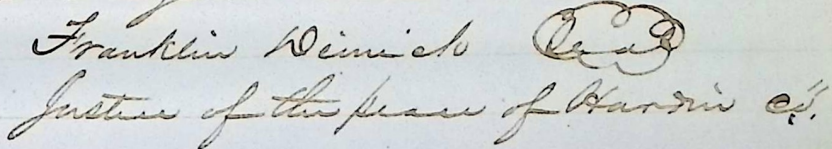 Franklin Dimick Seal
Justice of the peace of Hardin Co.